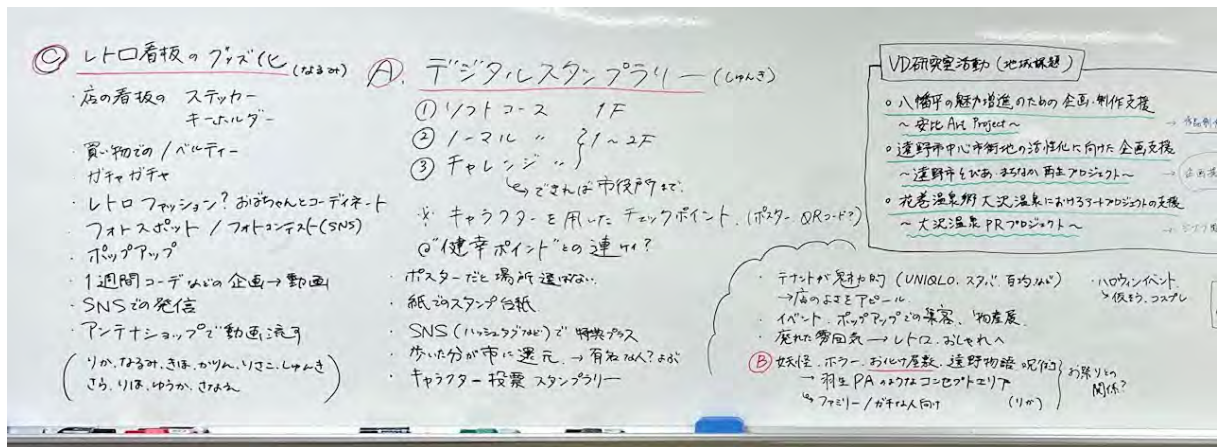 Ⓒ レトロ看板のグッズ化 (なるみ)
・店の看板の ステッカー
キーホルダー
・買い物でのノベルティー
・ガチャガチャ
・レトロファッション? おばちゃんとコーディネート
・フォトスポット / フォトコンテスト(SNS)
・ポップアップ
・1週間コーデなどの企画→動画
・SNSでの発信
・アンテナショップで動画流す
(りか、なるみ、きほ、かりん、りさこ、しゅんき
さら、りほ、ゆうか、さなえ)
Ⓐ. デジタルスタンプラリー (しゅんき)
① ソフトコース 1F
② ノーマル 〃 } 1〜2F
③ チャレンジ 〃
↳できれば市役所まで.
※ キャラクターを用いたチェックポイント. (ポスター QRコード?)
@"健幸ポイント"との連ケイ?
・ポスターだと場所選ばない.
・紙でのスタンプ台紙
・SNS (ハッシュタグなど)で 特典プラス
・歩いた分が市に還元. → 有名な人?よぶ
・キャラクター投票スタンプラリー
VD研究室活動 (地域課題)
○ 八幡平の魅力増進のための企画・制作支援
〜 安比 Art Project 〜
○ 遠野市中心市街地の活性化に向けた企画支援
〜遠野市とぴあ・まちなか再生プロジェクト〜
○ 花巻温泉郷大沢温泉におけるアートプロジェクトの支援
〜 大沢温泉PRプロジェクト 〜
・テナントが魅力的 (UNIQLO、スタバ、百均など)
→店のよさをアピール
・イベント、ポップアップでの集客、物産展.
・廃れた雰囲気 → レトロ、おしゃれへ
Ⓑ 妖怪、ホラー、お化け屋敷、遠野物語 呪術
→ 羽生PAのようなコンセプトエリア
↳ファミリー/ガチな人向け (りか)
お祭りとの
関係?
・ハロウィンイベント
↳仮そう、コスプレ